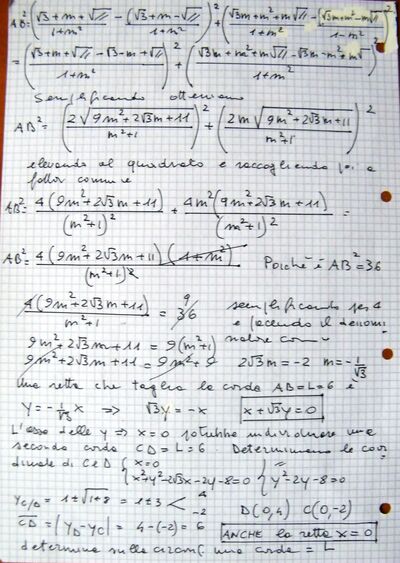 AB² = ((√3+m+√//)/(1+m²) - (√3+m-√//)/(1+m²))² + ((√3m+m²+m√//)/(1+m²) - (√3m+m²-m√//)/(1-m²))²
= ((√3+m+√// -√3-m+√//)/(1+m²))² + ((√3m+m²+m√// -√3m-m²+m√)/(1+m²))²
Semplificando otteniamo
AB² = (2√(9m²+2√3m+11)/(m²+1))² + (2m√(9m²+2√3m+11)/(m²+1))²
elevando al quadrato e raccogliendo poi a
fattor comune
AB² = 4(9m²+2√3m+11)/(m²+1)² + 4m²(9m²+2√3m+11)/(m²+1)² =
AB² = 4(9m²+2√3m+11)(1+m²)/(m²+1)² Poichè è AB²=36
4(9m²+2√3m+11)/(m²+1) = 36 9 semplificando per 4
e facendo il denomi
9m²+2√3m+11 = 9(m²+1) natore comu
9m²+2√3m+11 = 9m²+9 2√3m=-2 m=-1/√3
Una retta che taglia la corda AB=L=6 è
y=-1/√3 x ⇒ √3y=-x x+√3y=0
L'asse delle y ⇒ x=0 potrebbe individuare una
seconda corda CD=L=6. Determiniamo le coor
dinate di C e D { x=0 x²+y²-2√3x-2y-8=0 { // y²-2y-8=0
y C/D = 1±√1+8 = 1±3 < 4 -2 D(0,4) C(0,-2)
CD = |yD-yC| = 4-(-2) = 6 ANCHE la retta x=0
determina sulla circonf. una corda = L